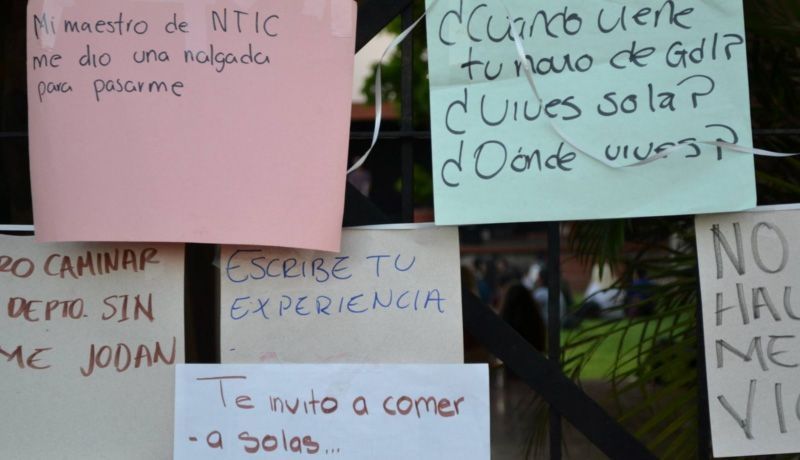 Mi maestro de NTIC
me dio una nalgada
para pasarme
¿Cuándo viene
tu novio de Gdl?
¿Vives sola?
¿Dónde vives?
RO CAMINAR
DEPTO. SIN
ME JODAN
ESCRIBE TU
EXPERIENCIA
-
Te invito a comer
-a solas...
NO
HAU
ME
VIO